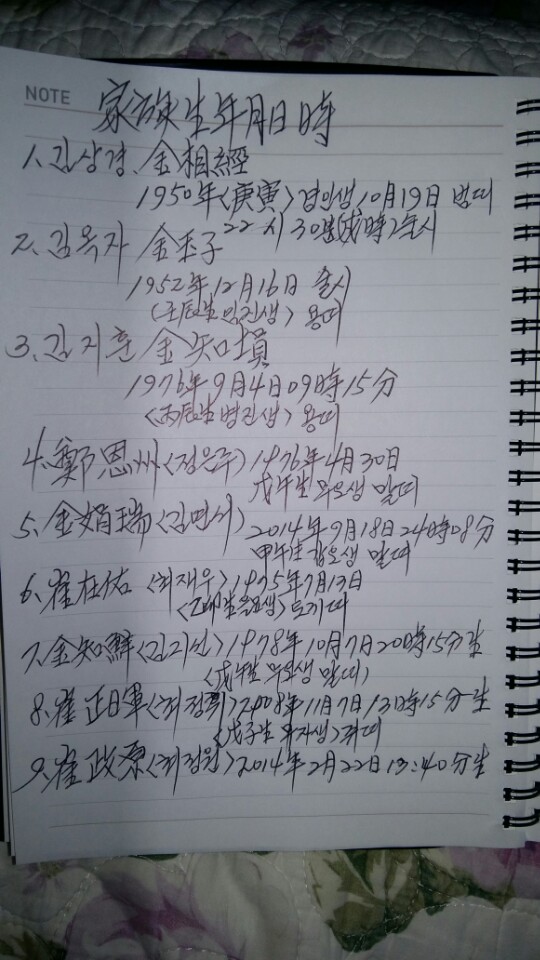 NOTE
家族生年月日時
1. 김상경. 金相經
1950年<庚寅>경인생 10月19日 범띠
22시 30분(戌時)술시
2. 김옥자 金玉子
1952年 12月 16日 술시
<壬辰生 임진생> 용띠
3. 김지훈 金知塤
1976年 9月 4日 09時 15分
<丙辰生 병진생> 용띠
4. 鄭恩州<정은주> 1976年 4月 30日
戊午生 무오생 말띠
5. 金婿瑞<김면서>
2014年 9月 18日 24時 08分
甲午生 갑오생 말띠
6. 崔在佑 <최재우> 1975年 7月 13日
<乙卯生 을묘생> 토끼띠
7. 金知鮮<김지선> 1978年 10月 7日 20時 15分生
<戊午生 무오생 말띠>
8. 崔 <최정훤> 2008年 11月 7日 13時 15分生
<戊子生 무자생> 쥐띠
9. 崔政源<최정원> 2014年 2月 22日 13:40分生